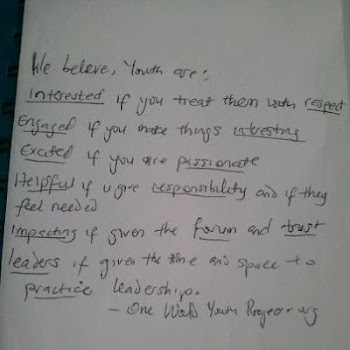 We believe, Youth are:
Interested if you treat them with respect
Engaged if you make things interesting
Excited if you are passionate
Helpful if u give responsibility and if they
feel needed
Impacting if given the forum and trust
leaders if given the time and space to
practice leadership.
- One World Youth Project.org